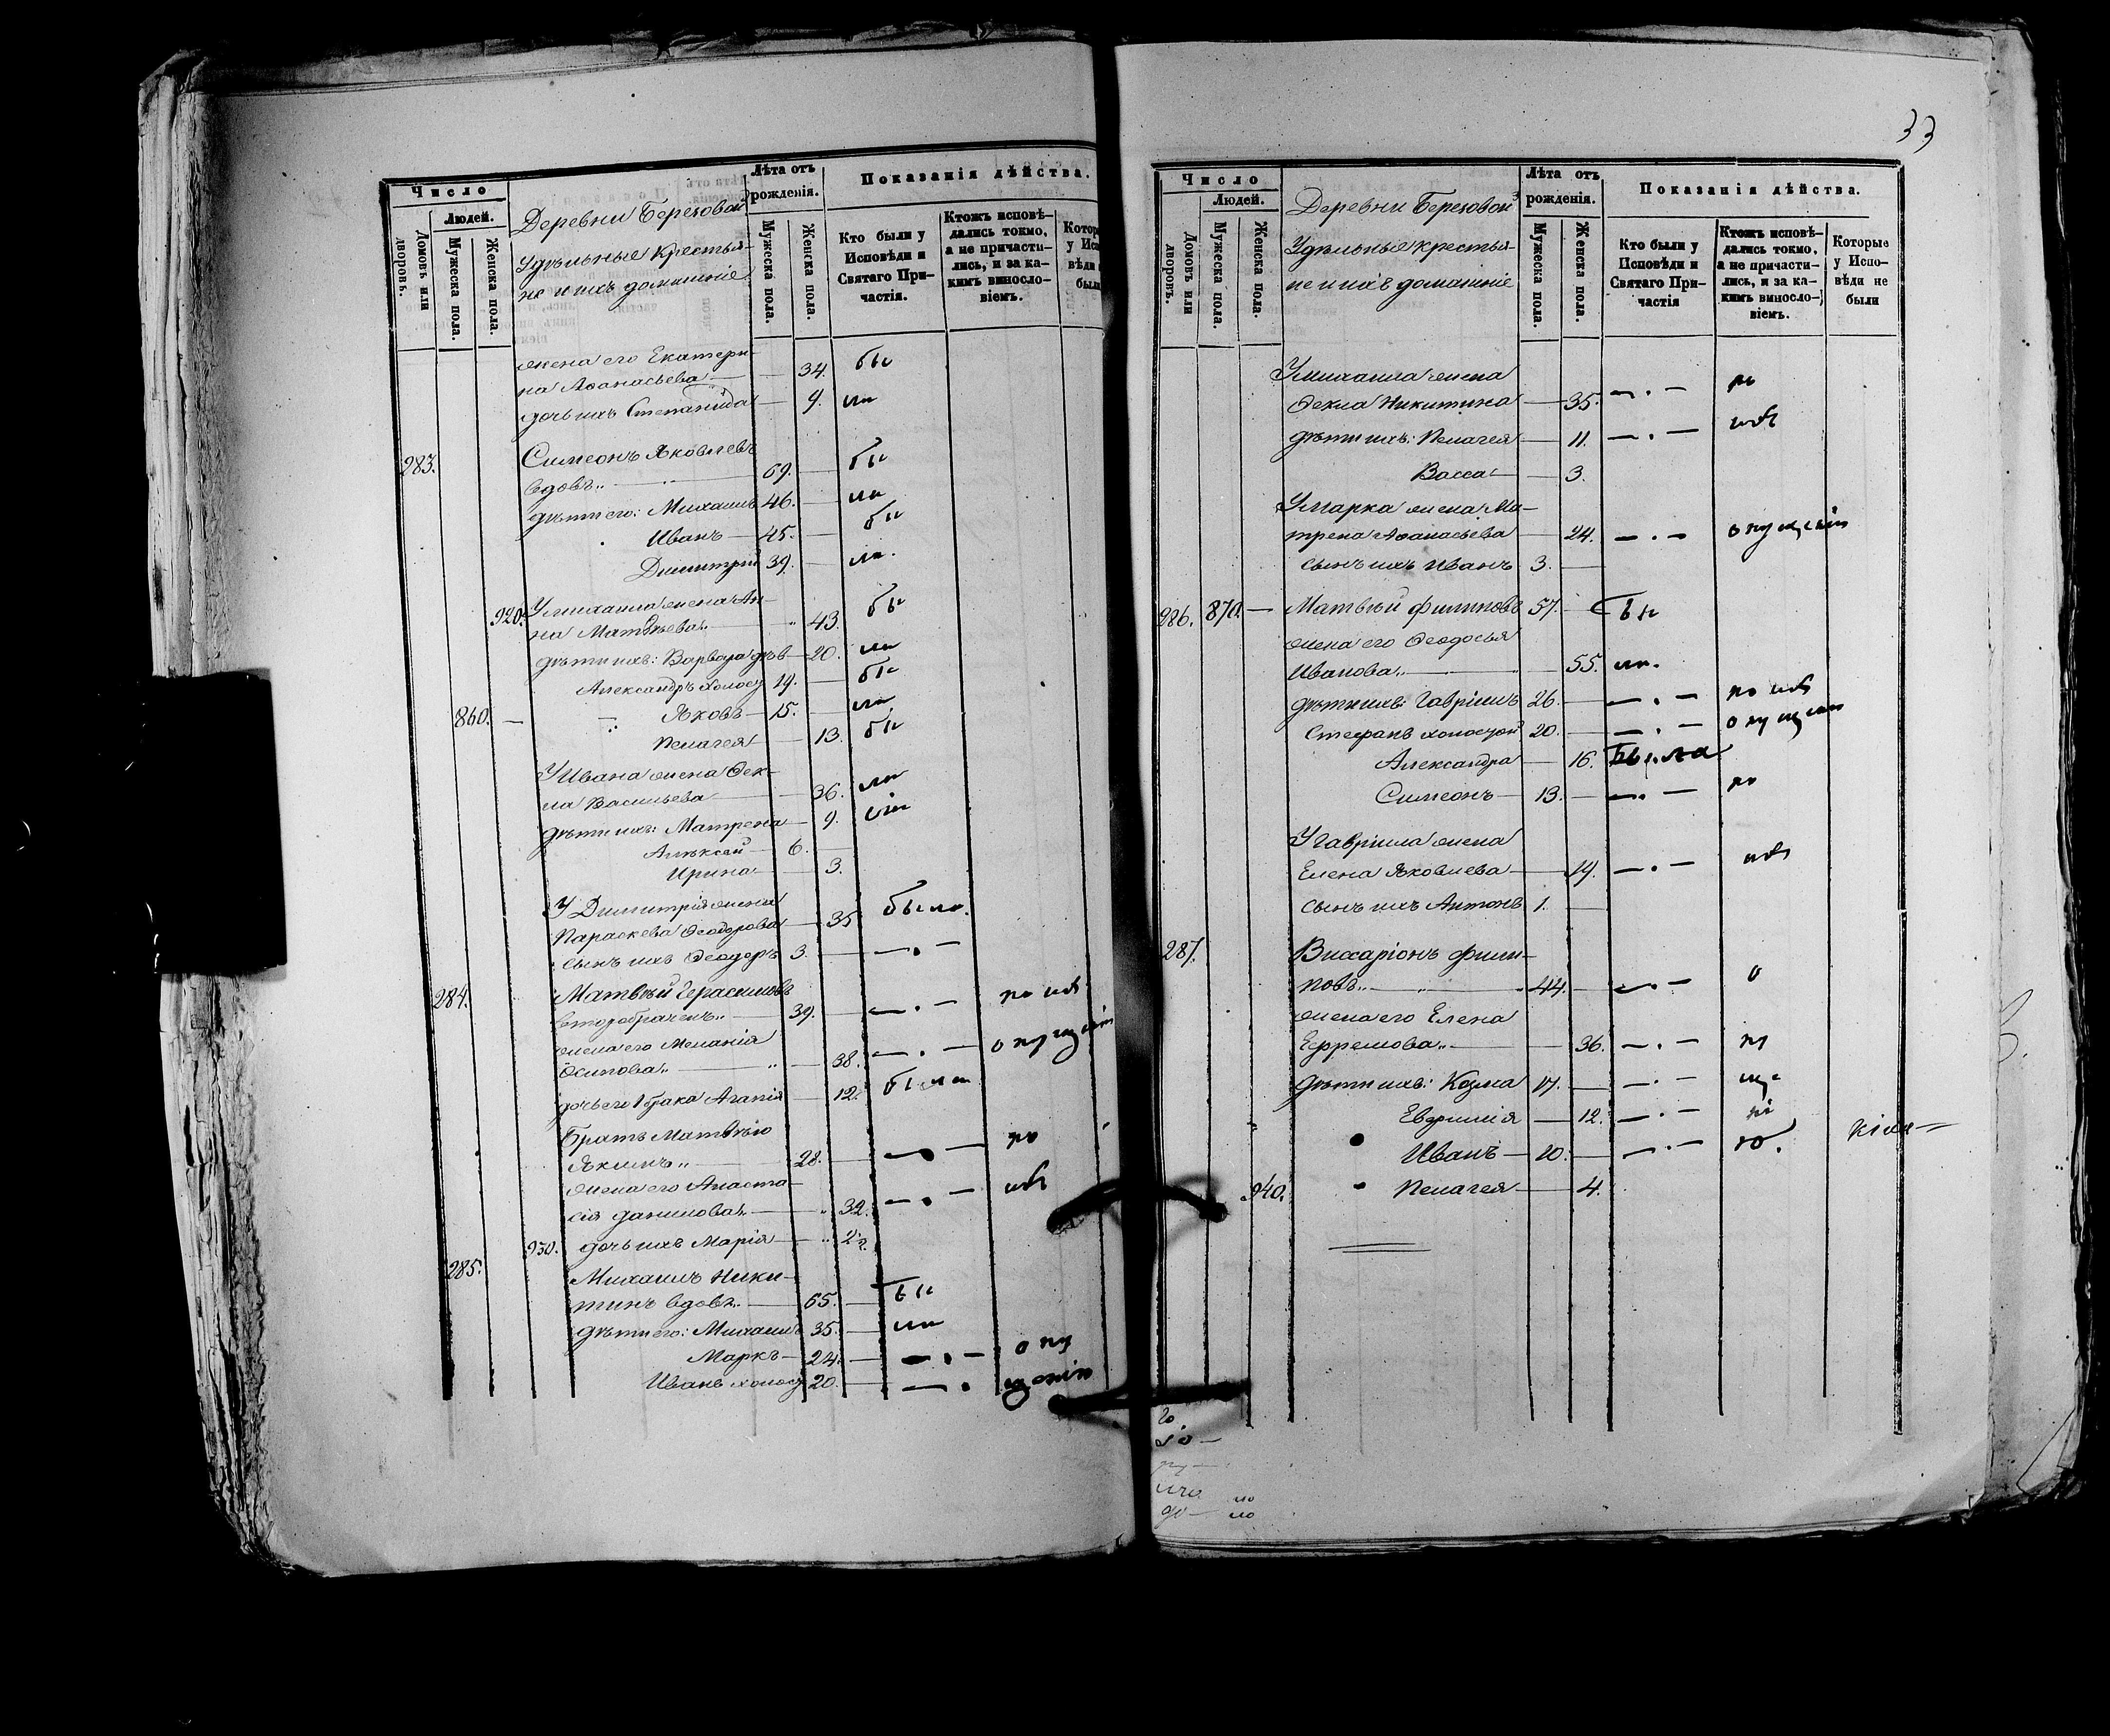 33
Число
Людей.
Домовъ или дворовъ.
Мужеска пола.
Женска пола.
Деревни Березовой
Удѣльные крестья-
не и ихъ домашніе
Лѣта отъ рожденія.
Мужеска пола.
Женска пола.
Показанія дѣйства.
Кто были у Исповѣди и Святаго При-частія.
Ктожъ исповѣ-дались токмо, а не причасти-лись, и за ка-кимъ винословіемъ.
жена его Екатери-
на Аѳанасьева — 34. бы
дочь ихъ Степанида — 9. ли
283. Симеонъ Яковлевъ
вдовъ 69. — бы
дѣти его: Михаилъ 46. — ли
Иванъ — 45. — бы
Димитрій 39. — ли.
920. У Михаила жена Ан-
на Матвѣева 43. бы
дѣти ихъ: Варвара дѣв — 20. ли
Александръ холос 19. — бы
860. — Яковъ — 15. — ли
Пелагея — 13. бы
У Ивана жена Ѳек-
ла Васильева — 36. ли
дѣти ихъ: Матрена — 9.
Алексѣй — 6. —
Ирина — 3.
У Димитрія жена
Параскева Ѳеодорова — 35 были.
сынъ ихъ Ѳеодоръ 3. — — . —
284. Матвѣй Герасимовъ
второбраченъ 39. — — . — по неб
жена его Меланія
Осипова — 38. — . — о пущенію
дочь его 1 брака Агапія — 12. была
Братъ Матвѣю
Якимъ 28. — — . — по
жена его Анаста-
сія Данилова 32. — . — неб
930. дочь ихъ Марія — 2 г.
285. Михаилъ Ники-
тинъ вдовъ 65. — бы
дѣти его: Михаилъ 35. — ли
Маркъ — 24. — — . — о пу
Иванъ холос 20. — — . щенію
Число
Людей.
Домовъ или дворовъ.
Мужеска пола.
Женска пола.
Деревни Березовой
Удѣльные крестья-
не и ихъ домашніе
Лѣта отъ рожденія.
Мужеска пола.
Женска пола.
Показанія дѣйства.
Кто были у Исповѣди и Святаго При-частія
Ктожъ исповѣ-дались токмо, а не причасти-лись, и за ка-кимъ винословіемъ.
Которые у Испо-вѣди не были
У Михаила жена
Ѳекла Никитина — 35. — . — по
дѣти ихъ: Пелагея — 11. — . — неб
Васса — 3.
У Марка жена Ма-
трена Аѳанасьева — 24. — . — о пущенію
сынъ ихъ Иванъ 3. —
286. 870. — Матвѣй Филиповъ 57. — бы
жена его Ѳеодосья
Иванова 55. ли.
дѣти ихъ: Гавріилъ 26. — — . — по неб
Стефанъ холостой 20. — — . — о пущенію
Александра — 16. была
Симеонъ — 13. — — . — по
У Гавріила жена
Елена Яковлева — 19. — . — неб
сынъ ихъ Антонъ 1. —
287. Виссаріонъ Фили-
повъ 44. — — . — о
жена его Елена
Ефремова — 36. — . — пу
дѣти ихъ: Козма 17. — — . — ще
Евфимія — 12. — . — ні
Иванъ — 10. — — . — ю.
940. Пелагея — 4.